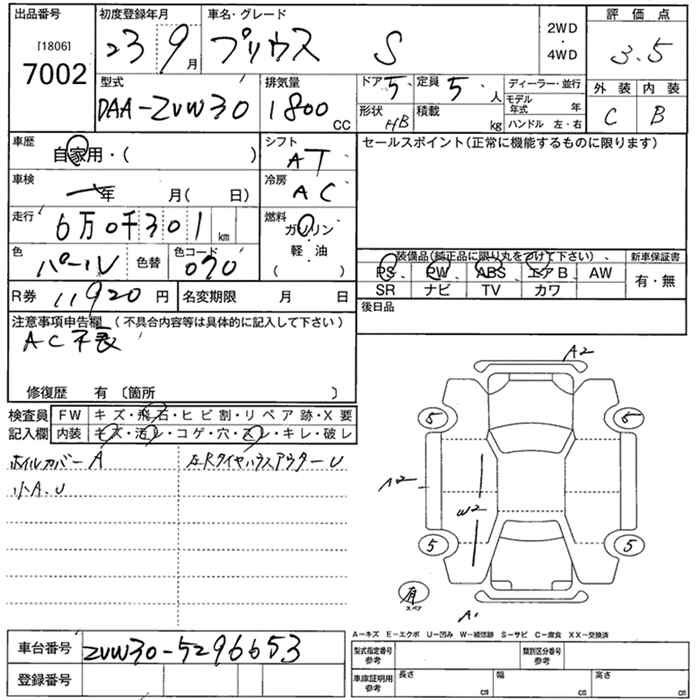 出品番号 初度登録年月 車名・グレード 2WD・4WD 評価点
[1806]
7002 23 9月 プリウス S 3.5
型式 排気量 ドア 5 定員 5人 ディーラー・並行 外装 内装
DAA-ZVW30 1800CC 形状 HB 積載 kg モデル年式 年 C B
ハンドル 左・右
車歴 自家用・( ) シフト AT セールスポイント(正常に機能するものに限ります)
車検 一年 月( 日) 冷房 AC
走行 6万0千301km 燃料 ガソリン・軽・油( )
色 パール 色替 色コード 070
装備品(純正品に限り丸をつけて下さい)、 新車保証書
PS PW ABS エアB AW 有・無
SR ナビ TV カワ
R券 11920円 名変期限 月 日 後日品
注意事項申告欄 (不具合内容等は具体的に記入して下さい)
AC不良
修復歴 有 〔箇所 〕
検査員 FW キズ・飛石・ヒビ割・リペア跡・X要
記入欄 内装 キズ・汚レ・コゲ・穴・スレ・キレ・破レ
ホイルカバーA 左RタイヤハウスアウターU
小A.U
A2
5 5
A2
W2
5 5
有
スペア
A
A-キズ E-エクボ U-凹み W-補修跡 S-サビ C-腐食 XX-交換済
車台番号 ZVW30-5296653 型式指定番号 参考 類別区分番号 参考
登録番号 車庫証明用 参考 長さ cm 幅 cm 高さ cm